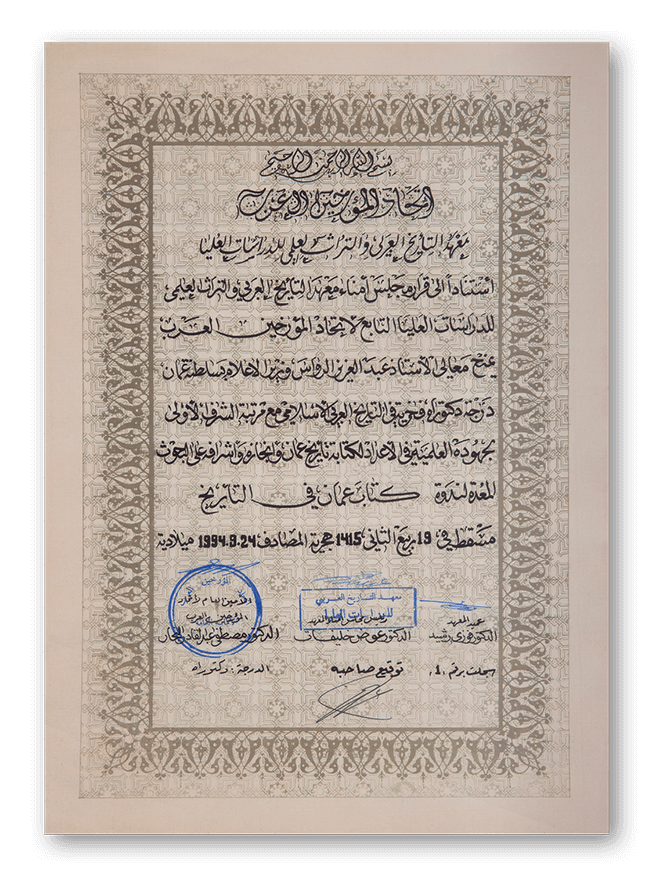 بسم الله الرحمن الرحيم
اتحاد المؤرخين العرب
معهد التاريخ العربي والتراث العلمي للدراسات العليا
استناداً الى قرار مجلس أمناء معهد التاريخ العربي والتراث العلمي
للدراسات العليا التابع لاتحاد المؤرخين العرب
يمنح معالي الأستاذ عبد العزيز الرواس وزير الاعلام بسلطنة عمان
درجة دكتوراه فخرية في التاريخ العربي الاسلامي مع مرتبة الشرف الأولى
لجهوده العلمية في الاعداد لكتابة تاريخ عمان وانجازه واشرافه على البحوث
المعدة لندوة كتاب عمان في التاريخ
مسقط في 19 ربيع الثاني 1415 هجرية المصادف 1994.9.24 ميلادية
عميد المعهد
الدكتور فوزي رشيد
معهد التاريخ العربي
للدراسات العليا
رئيس مجلس أمناء المعهد
الدكتور عوض خليفات
الأمين العام لاتحاد
المؤرخين العرب
الدكتور مصطفى عبد القادر النجار
سجلت برقم .1.
توقيع صاحبه
الدرجة: دكتوراه